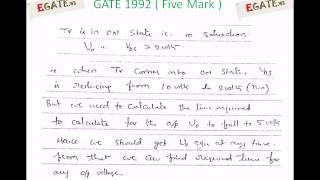 GATE 1992 ( Five Mark )
EGATE.in
EGATE.in
Tr is in on State i.e. in saturation
V₀ = V_DS > 2 volts
ie when Tr comes into on State, V_DS
is reducing from 10 volts to 2 volts (Min)
But we need to calculate the time required
to calculate for the o/p V₀ to fall to 5 volts
Hence we should get V₀ equ at any time.
from that we can find required time for
any o/p voltage.